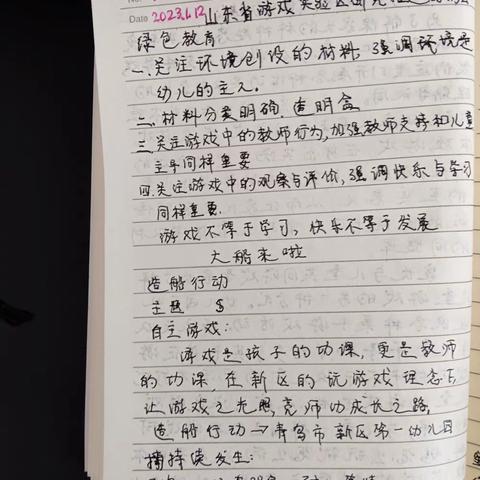 No.
Date 2023.6.12 山东省游戏实验区
绿色教育
一.关注环境创设的材料 强调环境是
幼儿的主人.
二.材料分类明确.透明盒
三.关注游戏中的教师行为,加强教师支持和儿童
主导同样重要
四.关注游戏中的观察与评价,强调快乐与学习
同样重要.
游戏不等于学习,快乐不等于发展
大船来啦
造船行动
主题
自主游戏:
游戏是孩子的功课,更是教师
的功课,在新区的玩游戏理念下,
让游戏之光照亮师幼成长之路,
造船行动→青岛市新区第一幼儿园
持续发生: